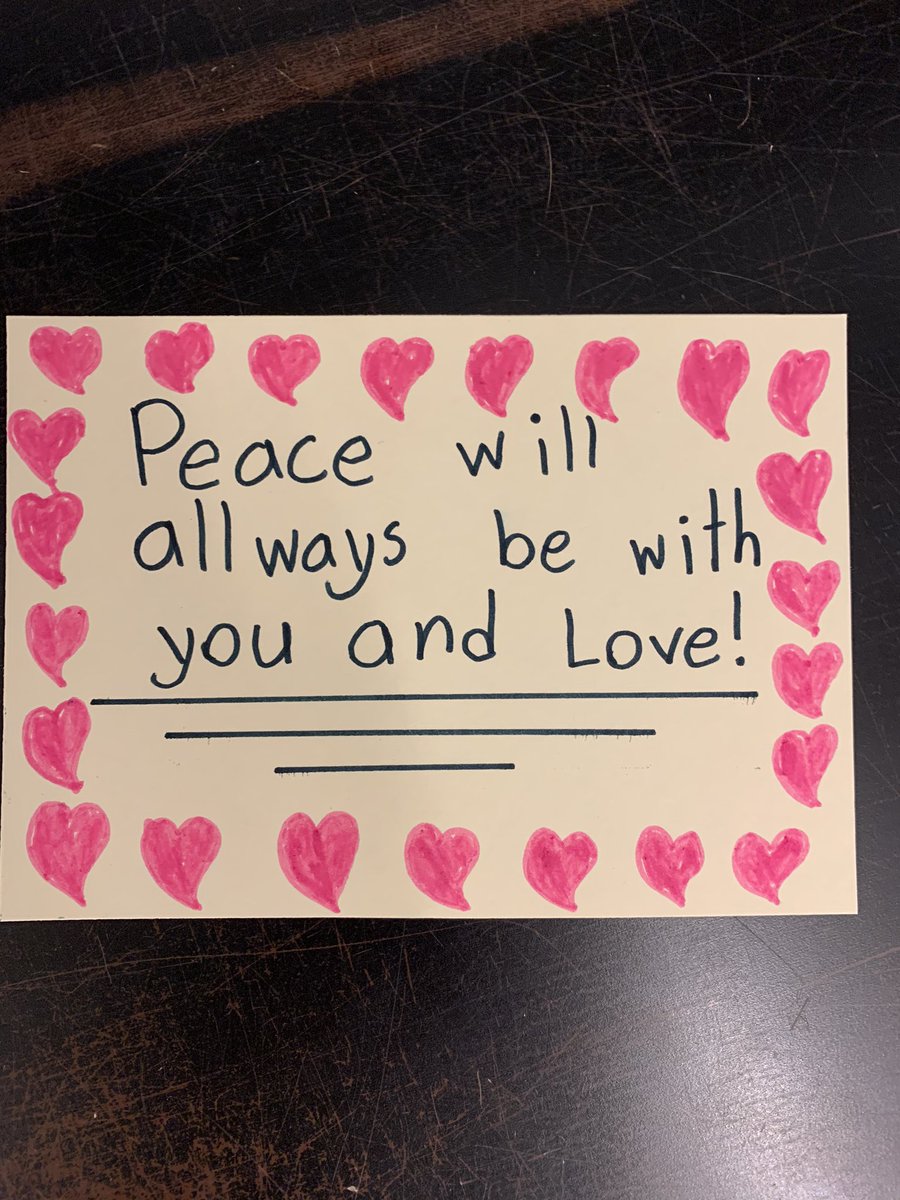 Peace will
allways be with
you and Love!